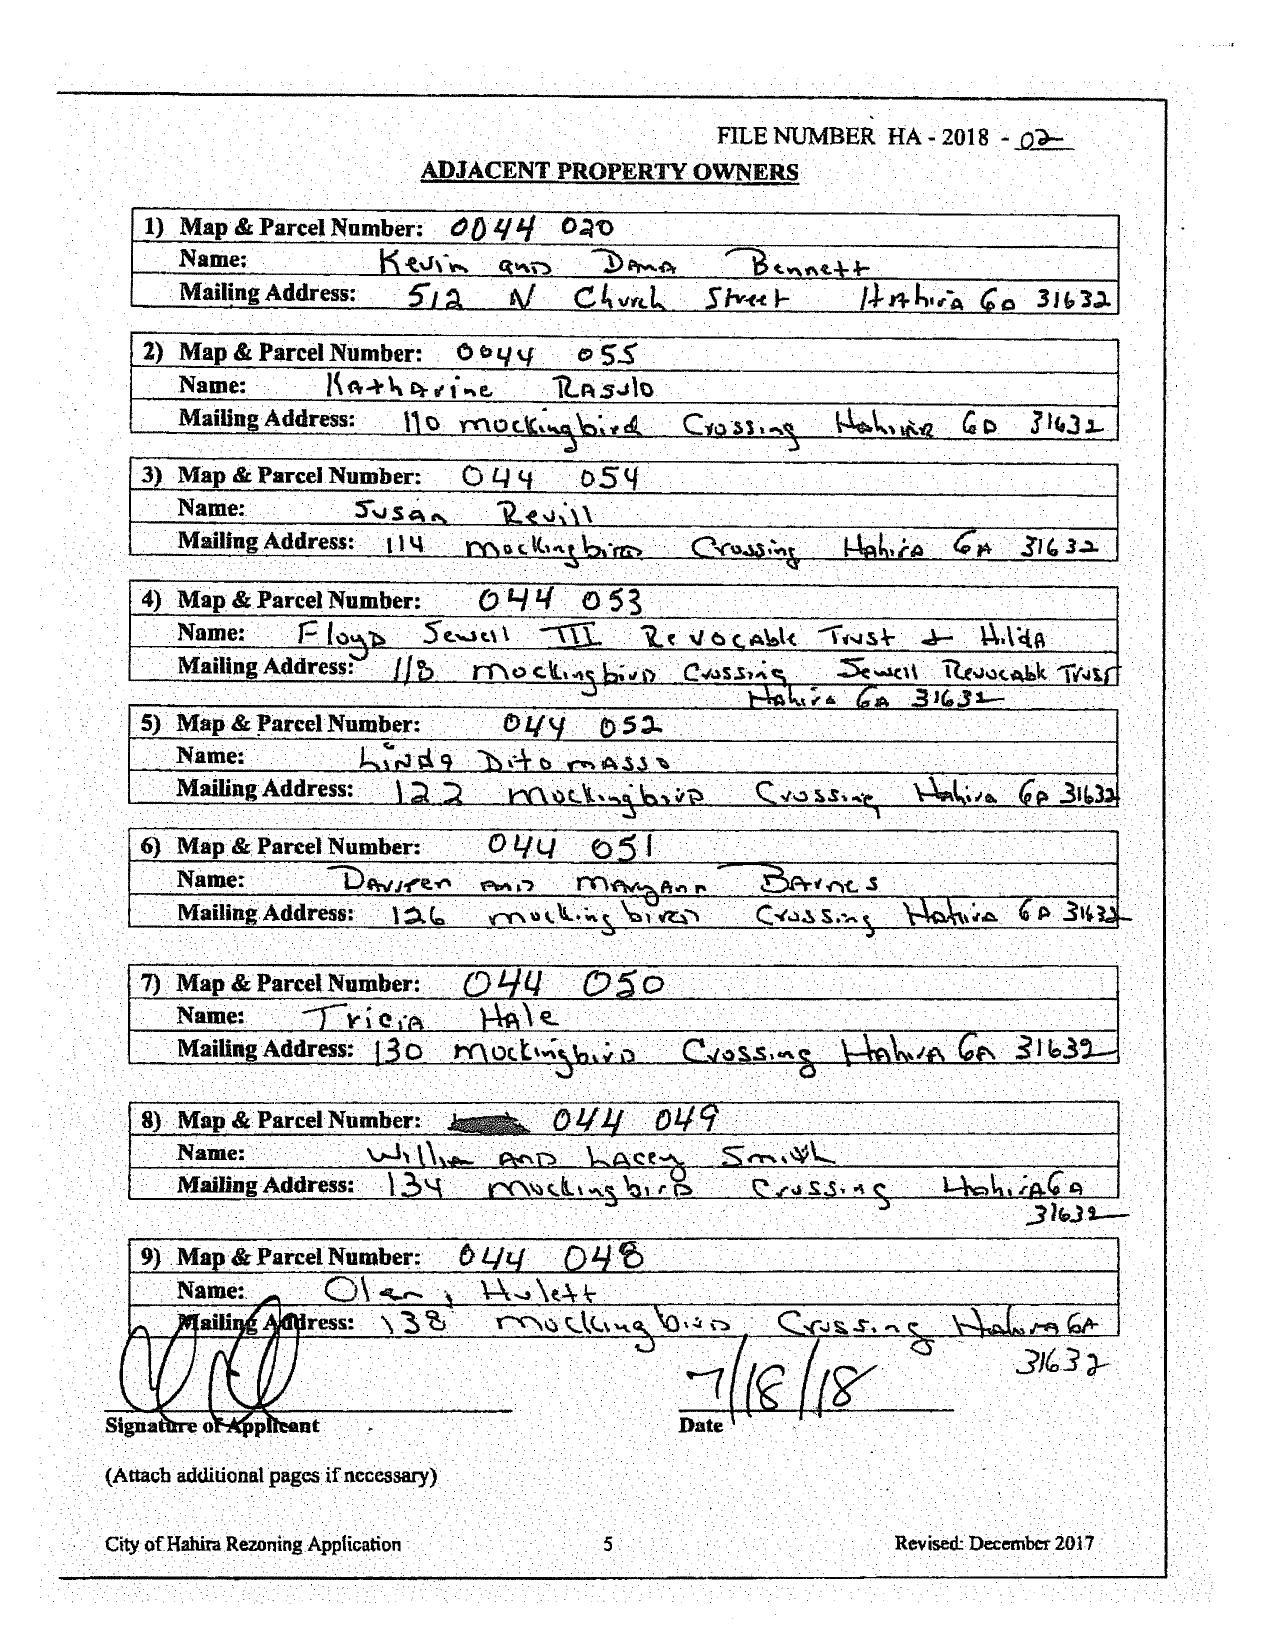 FILE NUMBER HA - 2018 - 02
ADJACENT PROPERTY OWNERS
1) Map & Parcel Number: 0044 020
Name: Kevin and Dana Bennett
Mailing Address: 512 N Church Street Hahira GA 31632
2) Map & Parcel Number: 0044 055
Name: Katharine Rasulo
Mailing Address: 110 Mockingbird Crossing Hahira GA 31632
3) Map & Parcel Number: 044 054
Name: Susan Revill
Mailing Address: 114 Mockingbird Crossing Hahira GA 31632
4) Map & Parcel Number: 044 053
Name: Floyd Sewell III Revocable Trust & Hilda
Mailing Address: 118 Mockingbird Crossing Sewell Revocable Trust
Hahira GA 31632
5) Map & Parcel Number: 044 052
Name: Linda Ditomasso
Mailing Address: 122 Mockingbird Crossing Hahira GA 31632
6) Map & Parcel Number: 044 051
Name: and Maryann Barnes
Mailing Address: 126 Mockingbird Crossing Hahira GA 31632
7) Map & Parcel Number: 044 050
Name: Tricia Hale
Mailing Address: 130 Mockingbird Crossing Hahira GA 31632
8) Map & Parcel Number: 044 049
Name: and Lacey Smith
Mailing Address: 134 Mockingbird Crossing Hahira GA
31632
9) Map & Parcel Number: 044 048
Name: Olan Hulett
Mailing Address: 138 Mockingbird Crossing Hahira GA
31632
7/18/18
Signature of Applicant Date
(Attach additional pages if necessary)
City of Hahira Rezoning Application 5 Revised: December 2017